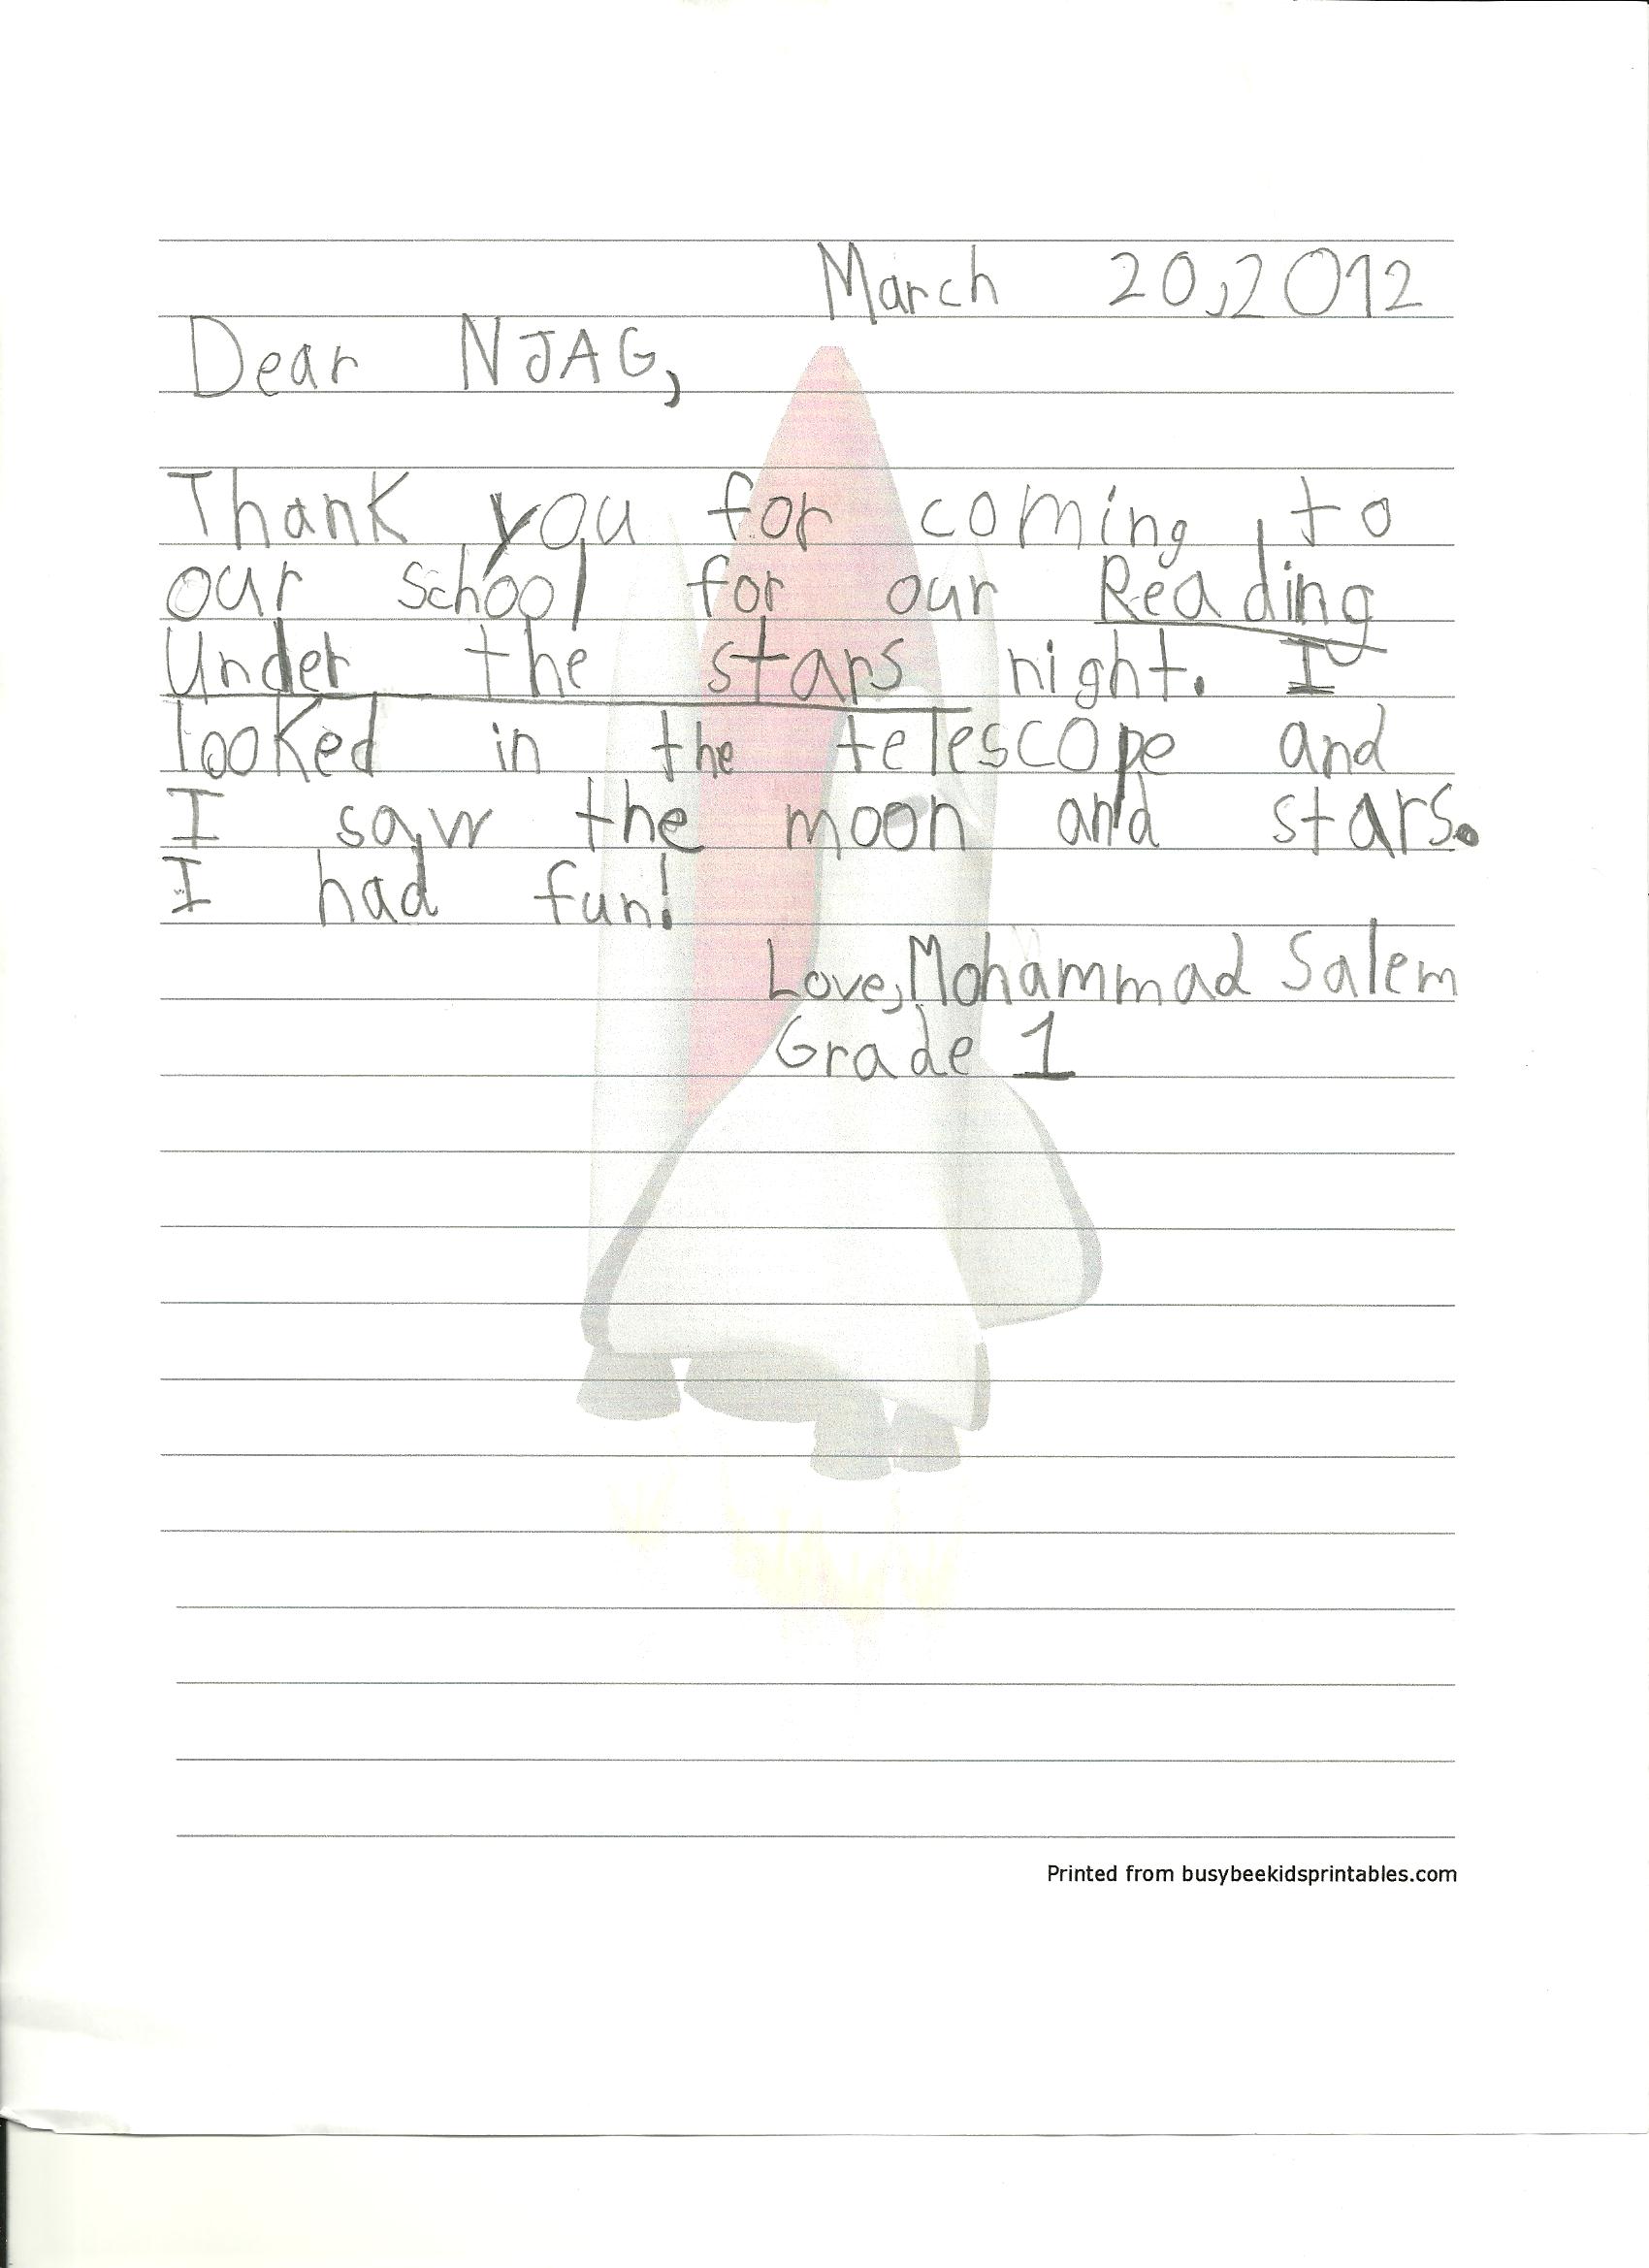 March 20,2012
Dear NJAG,
Thank you for coming to
our school for our Reading
Under the stars night. I
looked in the telescope and
I saw the moon and stars.
I had fun!
Love, Mohammad Salem
Grade 1
Printed from busybeekidsprintables.com